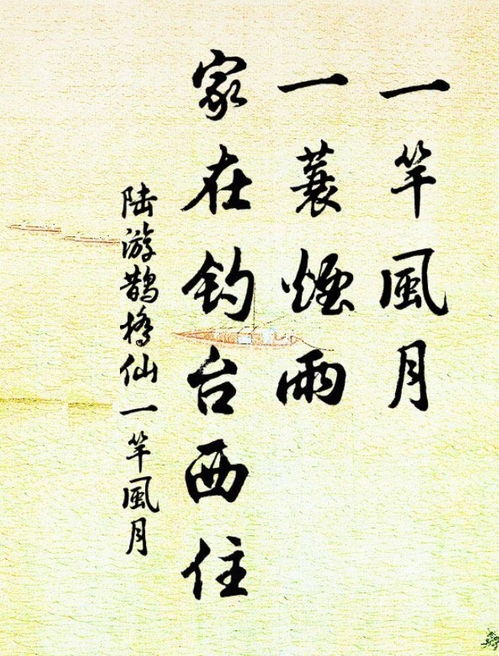 一竿風月
一蓑煙雨
家在钓台西住
陆游鹊橋仙一竿風月